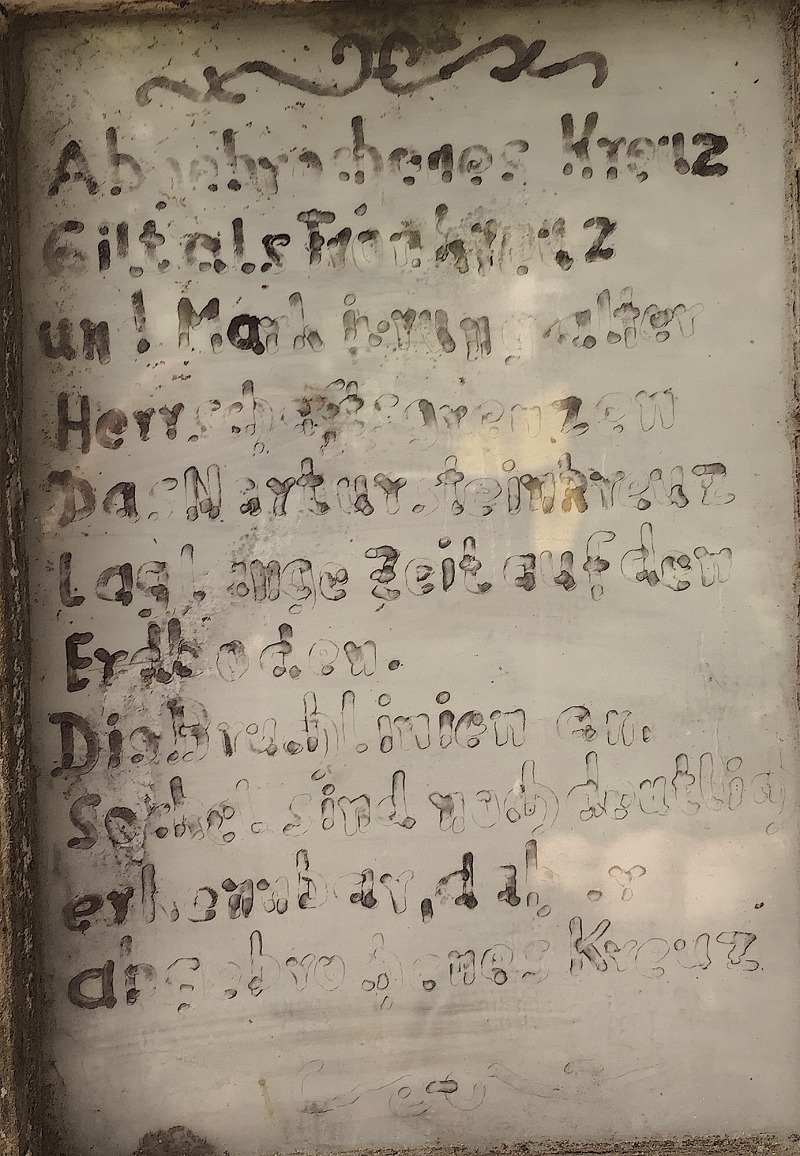 Abgebrochenes Kreuz
Gilt als Franckreuz
un! Markierung alter
Herrschaftsgrenzen
Das Nartursteinkreuz
Lag Lange Zeit auf den
Erdboden.
Die Bruchlinien an.
Sockel sind noch deutlich
erkennbar, daher
abgebrochenes Kreuz